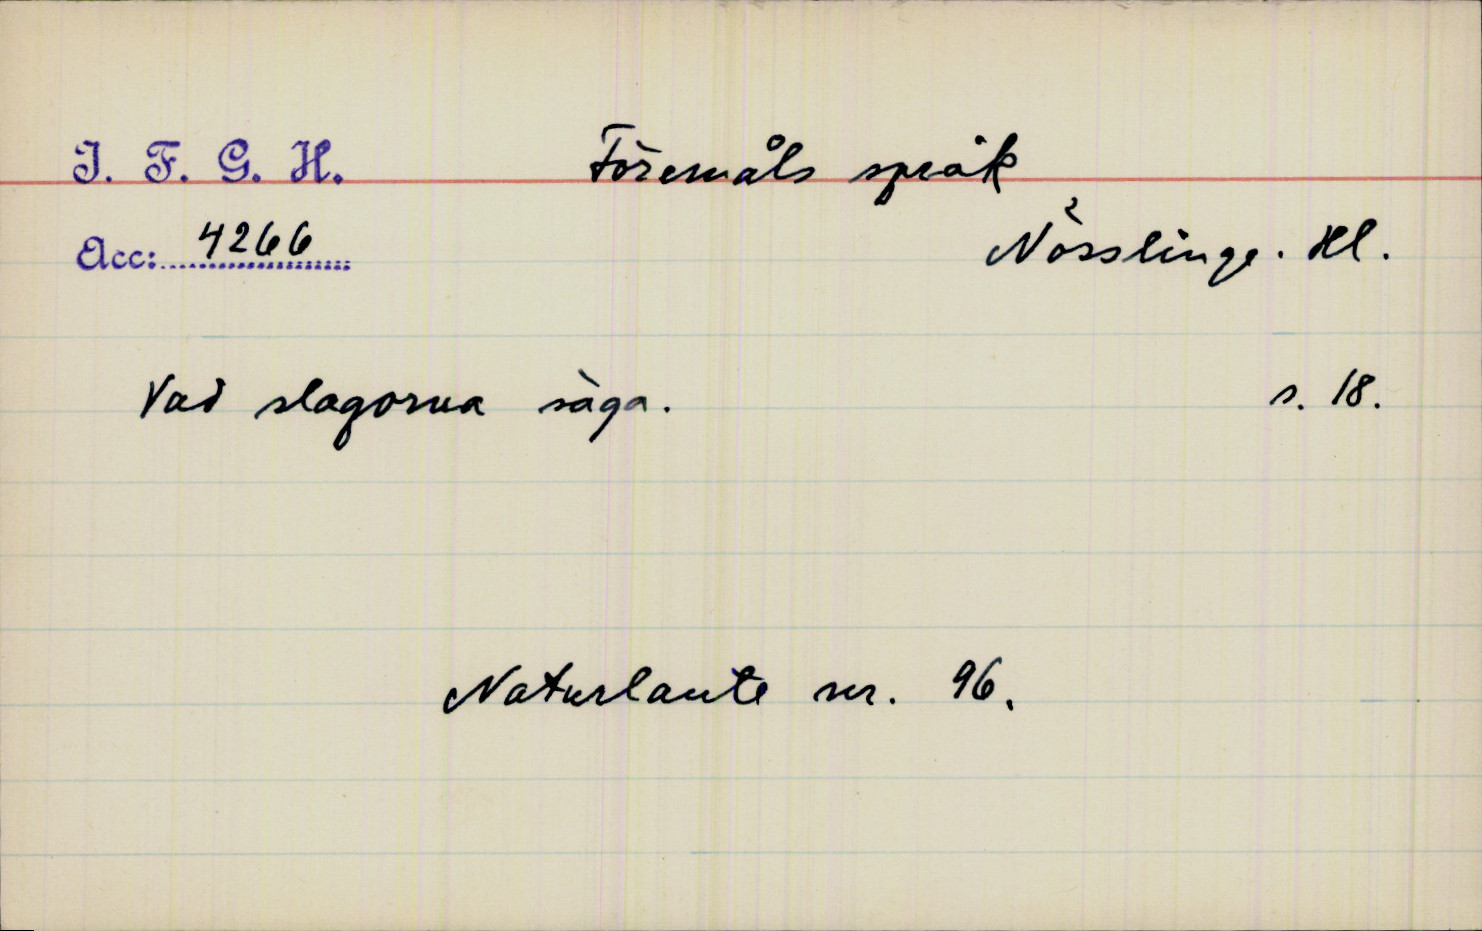 I. F. G. H.
Föremåls språk
Acc: 4266
Nösslinge. Hl.
Vad slagorna säga.
s. 18.
Naturlaute nr. 96.